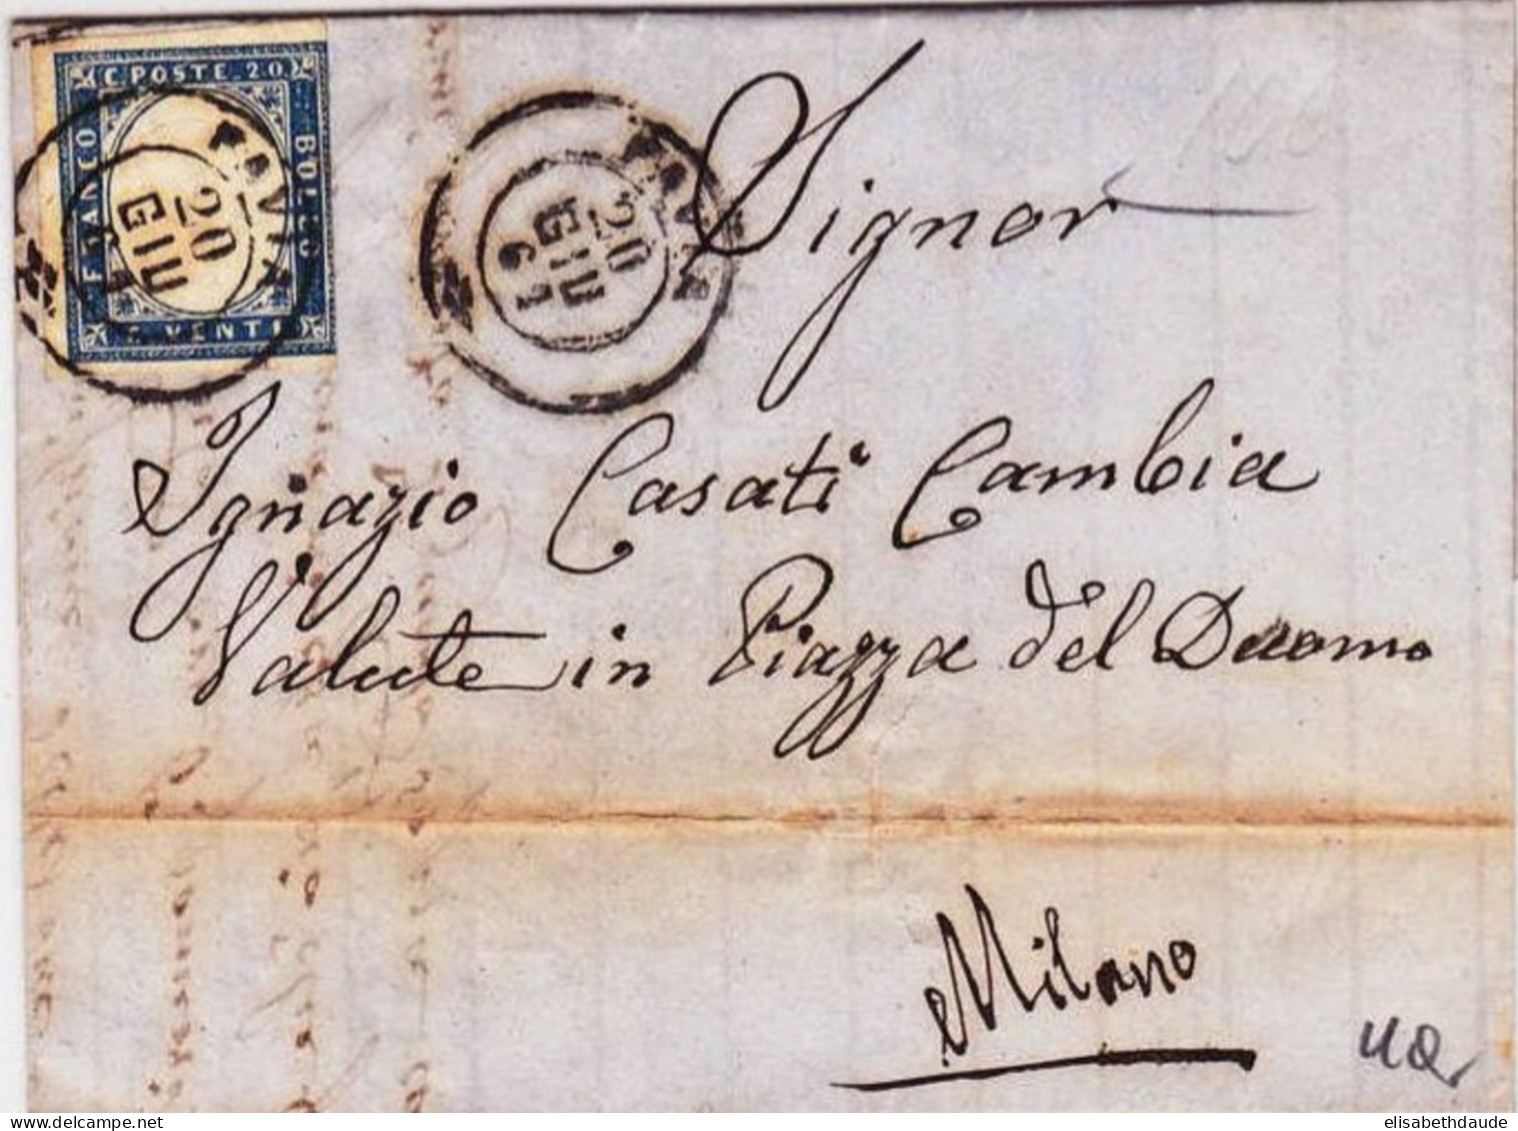 C. POSTE 20
FRANCO
BOLLO
C. VENTI
PAVIA
20
GIU
PAVIA
20
GIU
61
Signor
Ignazio Casati Cambia
Valute in Piazza del Duomo
Milano
elisabethdaude